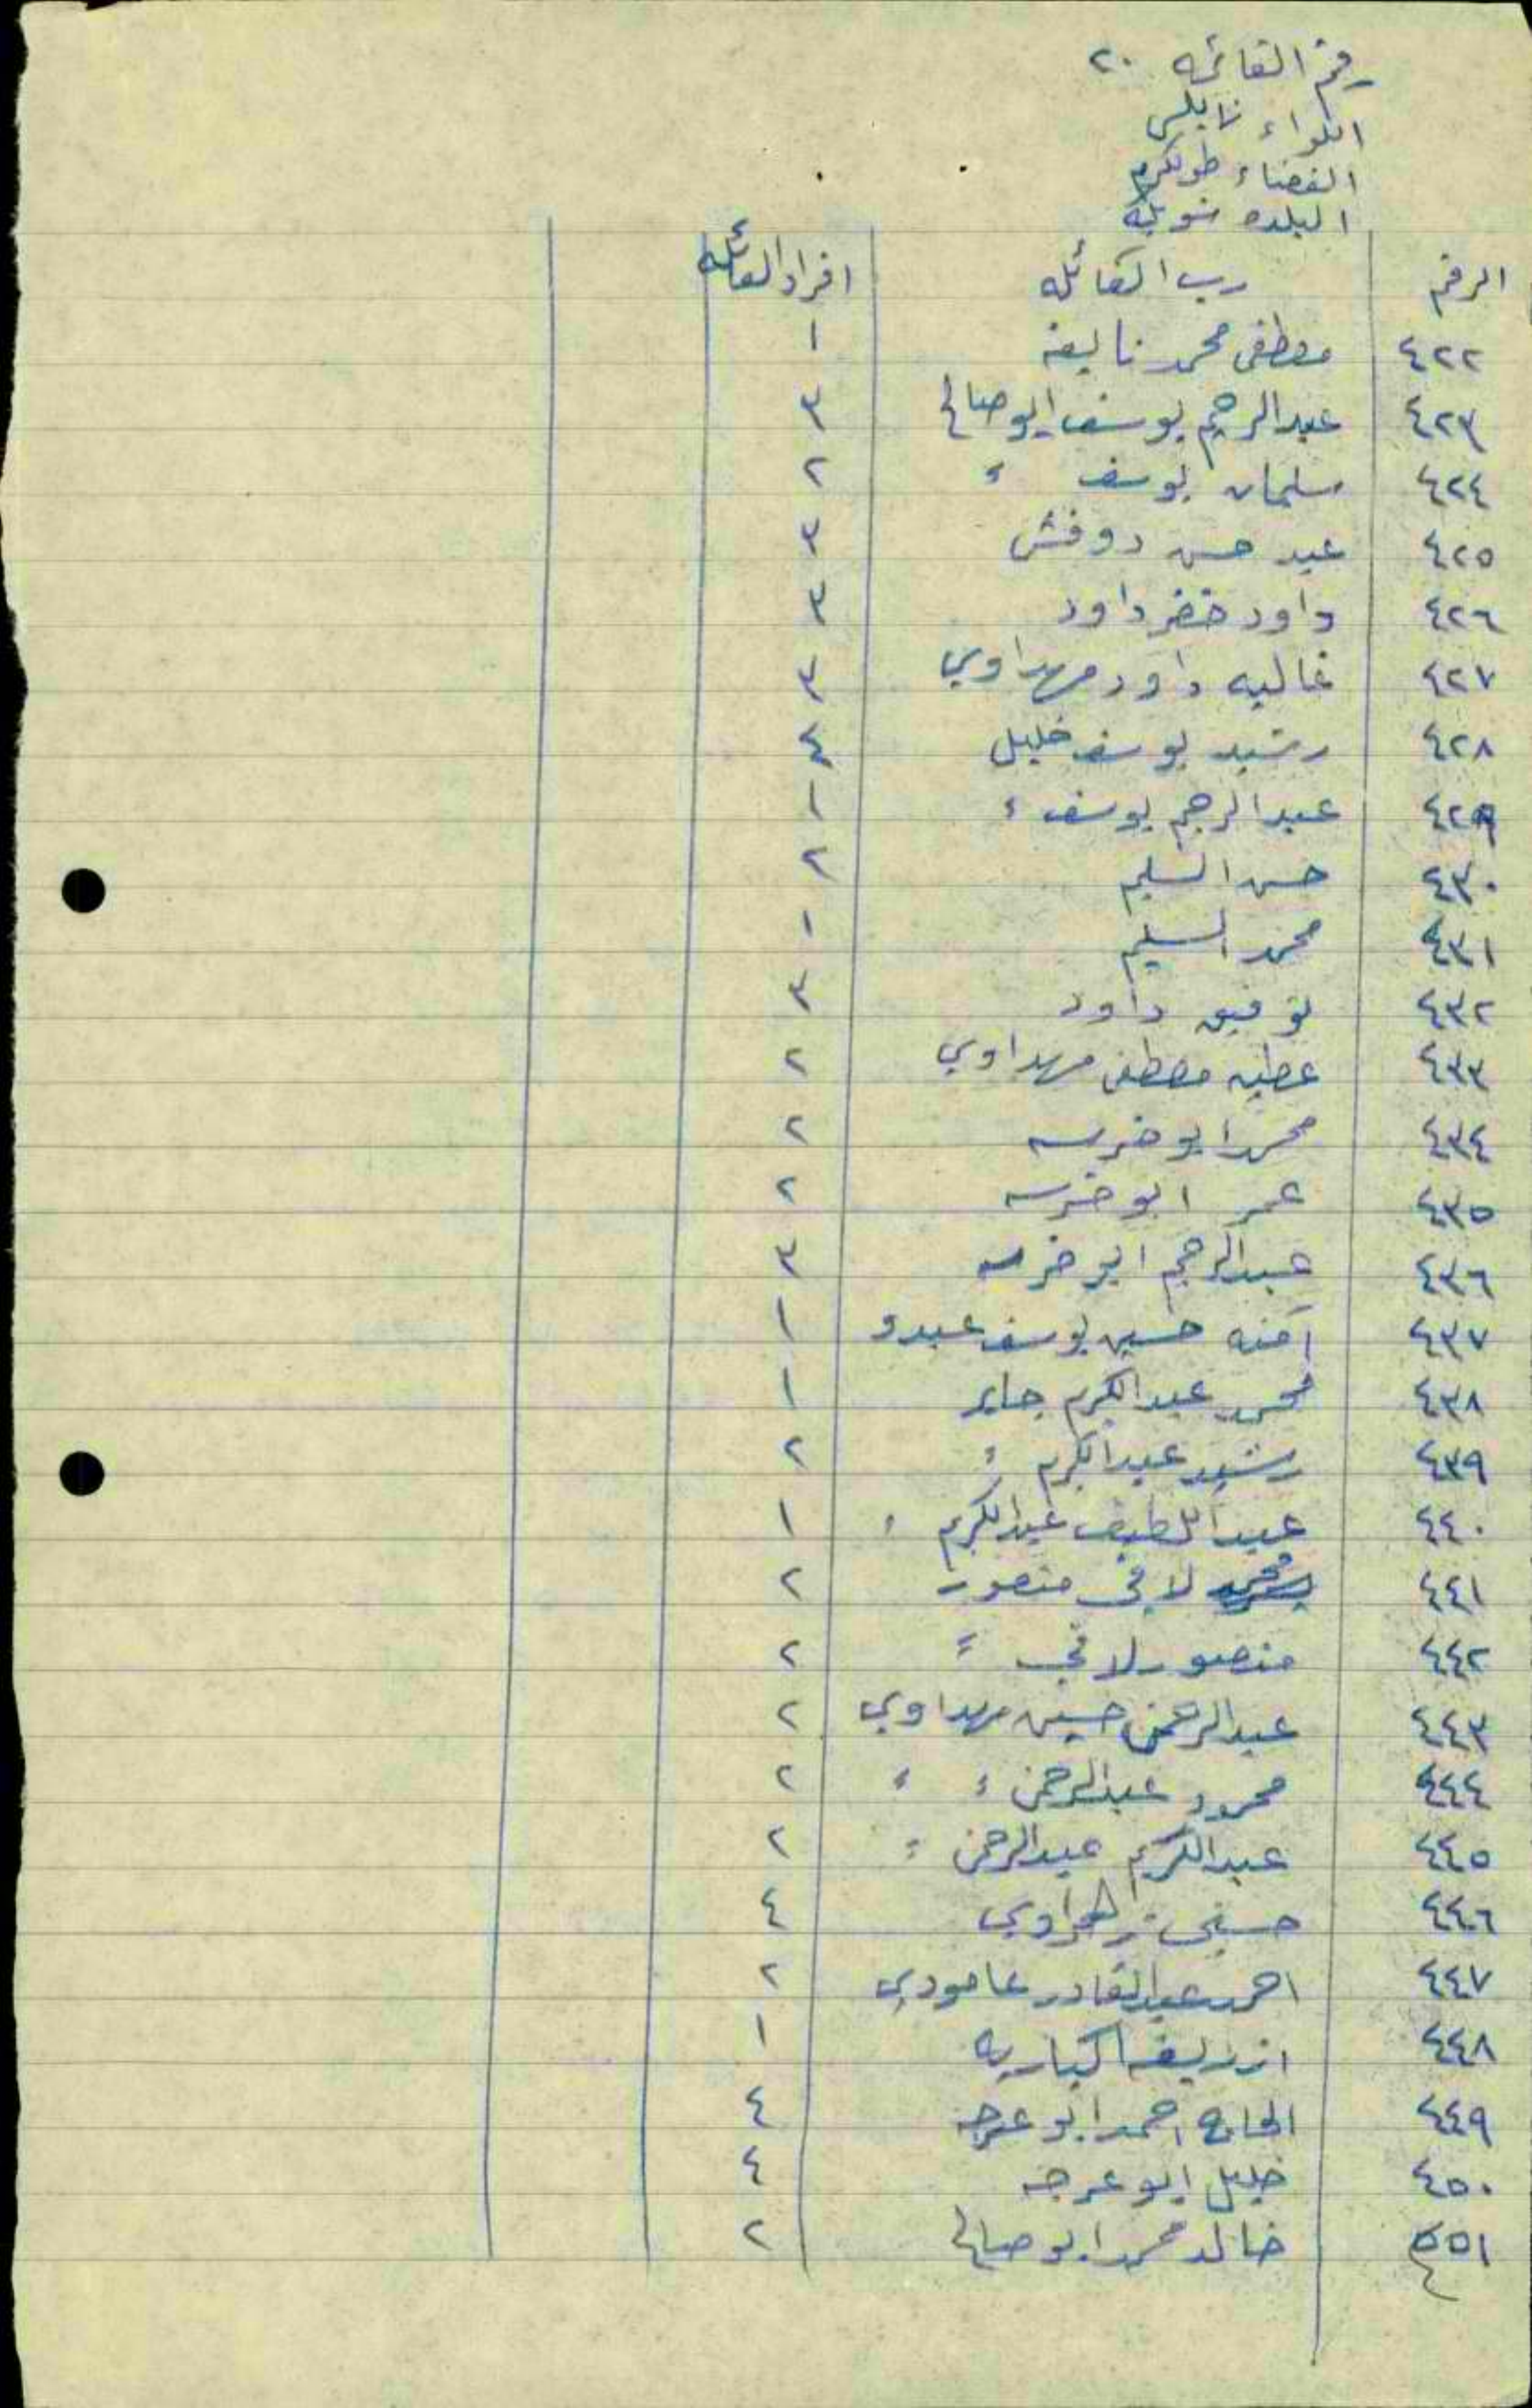 رقم القائمه ٢٠
اللواء نابلس
القضاء طولكرم
البلده شويكه
الرقم رب العائله افراد العائله
٤٢٢ مصطفى محمد نايفه ١
٤٢٣ عبدالرحيم يوسف ابو صالح ٣
٤٢٤ سليمان يوسف ٢
٤٢٥ عبد حسن دوفش ٣
٤٢٦ داود خضر داود ٣
٤٢٧ غاليه داود مهداوي ٣
٤٢٨ رشيد يوسف خليل ٤
٤٢٩ عبدالرحيم يوسف ١
٤٣٠ حسن السليم ٢
٤٣١ محمد السليم ١
٤٣٢ توفيق داود ٣
٤٣٣ عطيه مصطفى مهداوي ٢
٤٣٤ محمد ابو خرسه ٢
٤٣٥ عمر ابو خرسه ٢
٤٣٦ عبدالرحيم ابو خرسه ٣
٤٣٧ آمنه حسين يوسف عبدو ١
٤٣٨ محمد عبدالكريم جابر ١
٤٣٩ رشيد عبدالكريم ٢
٤٤٠ عبد اللطيف عبدالكريم ١
٤٤١ محمد لافي منصور ٢
٤٤٢ منصور لافي ٢
٤٤٣ عبدالرحمن حسين مهداوي ٢
٤٤٤ محمود عبدالرحمن ٢
٤٤٥ عبدالكريم عبدالرحمن ٢
٤٤٦ حسني زهراوي ٤
٤٤٧ احمد عبدالقادر عامودي ٢
٤٤٨ ١
٤٤٩ الحاج احمد ابو عرجه ٤
٤٥٠ خليل ابو عرجه ٤
٤٥١ خالد محمد ابو صالح ٢